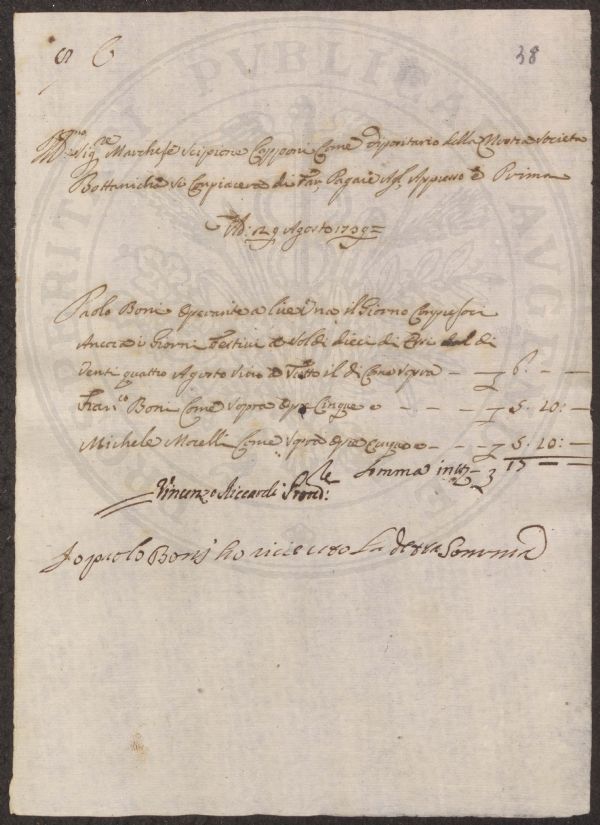 S C 38
Ill.mo Sig.re Marchese Scipione Capponi Come dipositario della Nostra Società
Bottanicha Si Compiacera di Far Pagare Al Appresso e Prima
Ad: 29 Agosto 1739=
Paolo Boni Operante a lire Una il Giorno Compresoci
Ancora i Giorni Festivi e Soldi dieci di
Venti quattro Agosto a Tutto il di Come Sopra — — 6. — —
Fran.co Boni Come Sopra Opre Cinque e — — — — 5. 10: —
Michele Morelli Come Sopra Opre e — — — 5. 10: —
Somma in — 3 —
Vincenzo Riccardi
Io paolo Boni ho riceuto La detta Somma